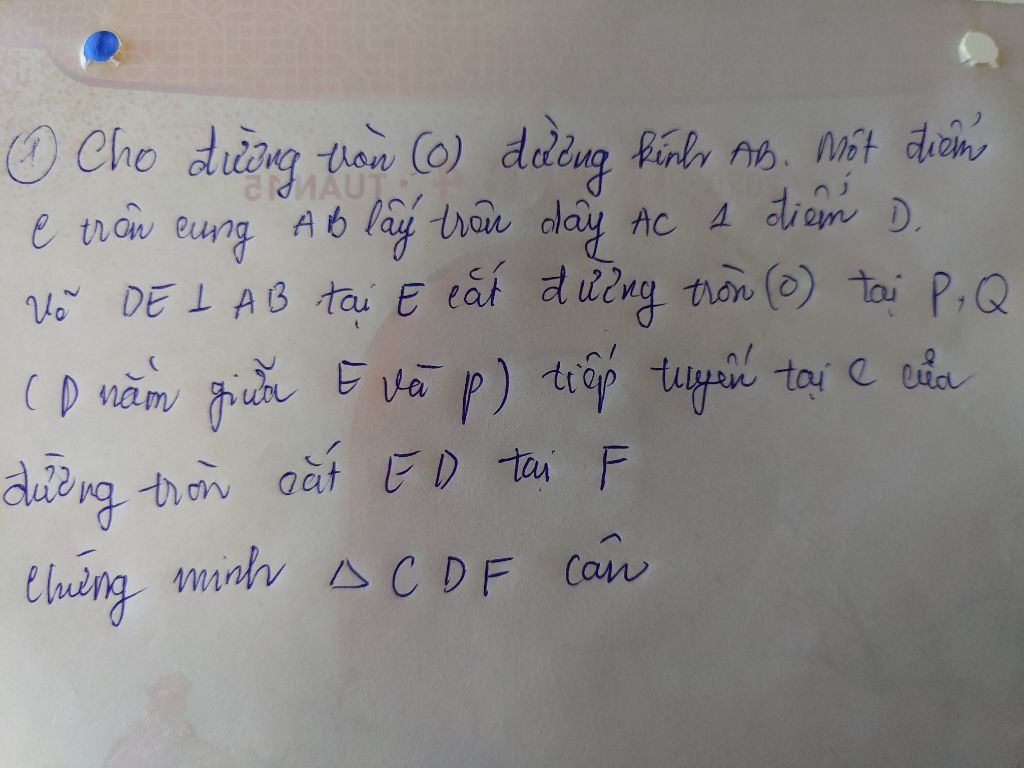 ① Cho đường tròn (O) đường kính AB. Một điểm
C trên cung AB lấy trên dây AC 1 điểm D.
Vẽ DE ⊥ AB tại E cắt đường tròn (O) tại P, Q
(D nằm giữa E và P) tiếp tuyến tại C của
đường tròn cắt ED tại F
Chứng minh △ CDF cân